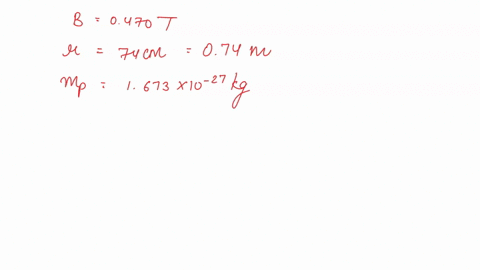 B = 0.470 T
r = 74 cm = 0.74 m
mp = 1.673 × 10^-27 kg